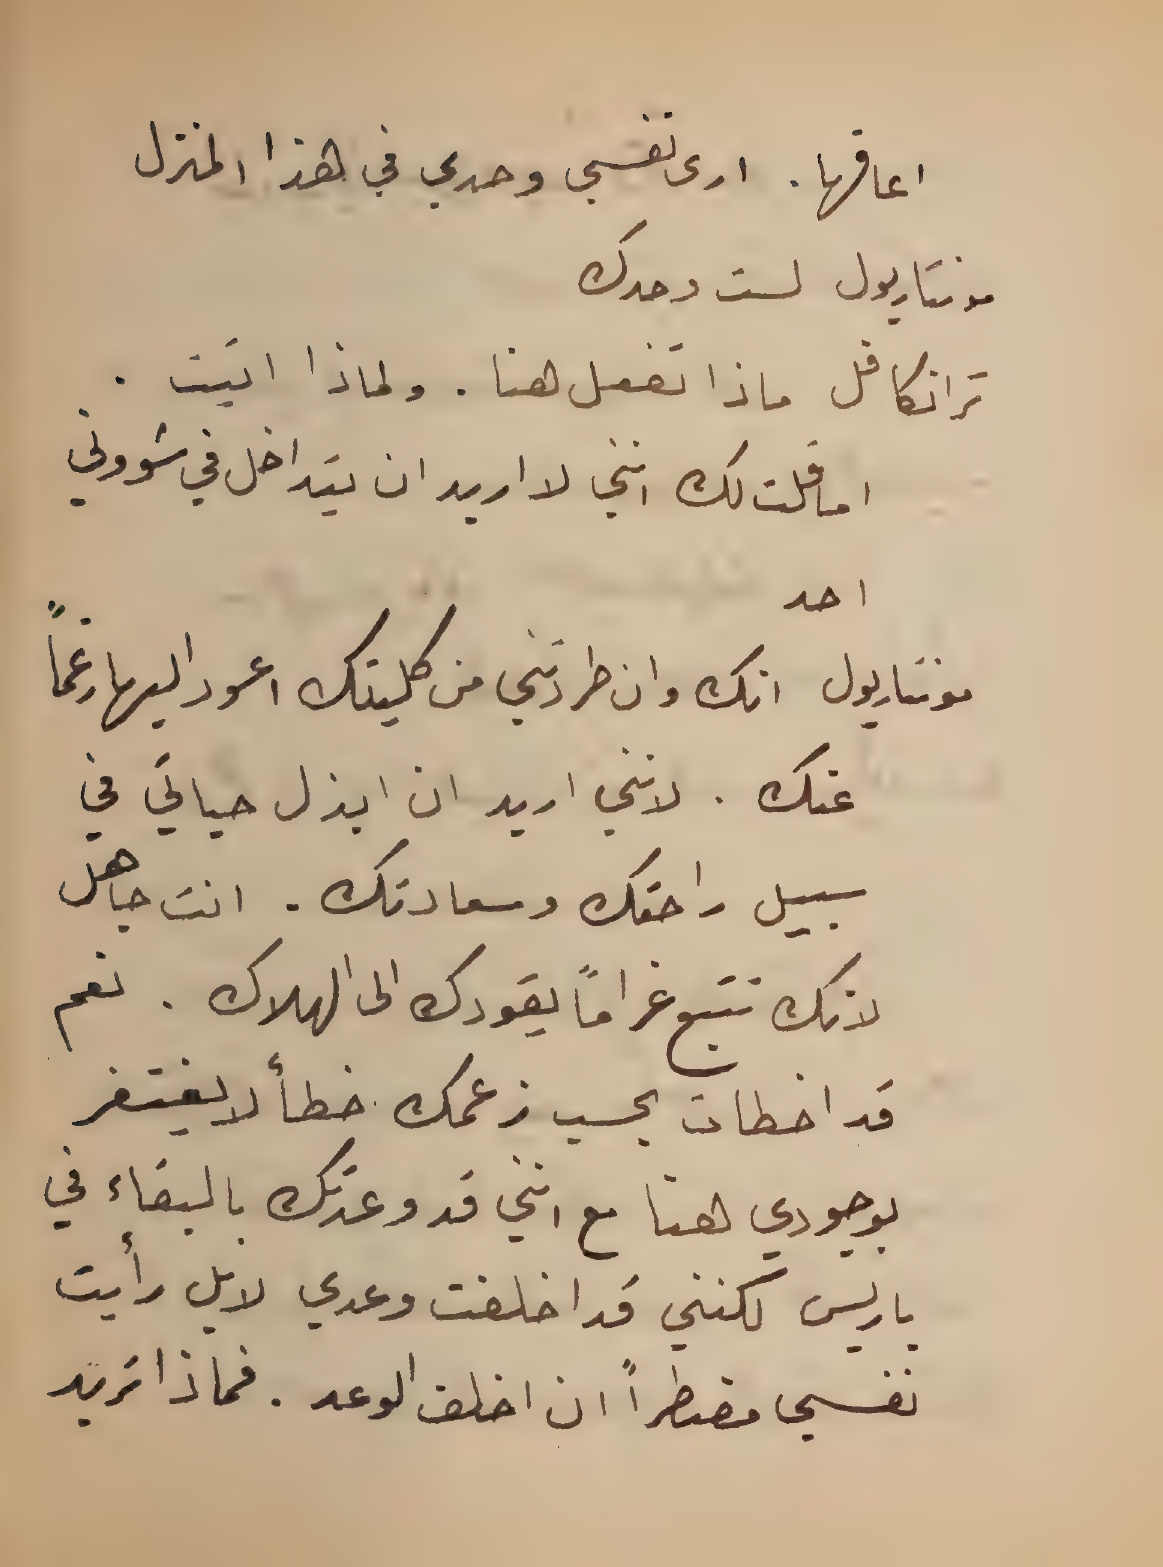 اعاقها . ارى نفسي وحدي في هذا المنزل
مونتاريول لست وحدك
ترانكافل ماذا تفعل هنا . ولماذا اتيت .
اما قلت لك انني لا اريد ان يتداخل في شووني
احد
مونتاريول انك وان طردتني من كليتك اعود اليها رغماً
عنك . لانني اريد ان ابذل حياتي في
سبيل راحتك وسعادتك . انت جاهل
لانك تتبع غراماً يقودك الى الهلاك . نعم
قد اخطات بحسب زعمك خطأ لا يغتفر
بوجودي هنا مع انني قد وعدتك بالبقاء في
باريس لكنني قد اخلفت وعدي لا بل رأيت
نفسي مضطراً ان اخلف الوعد . فماذا تريد